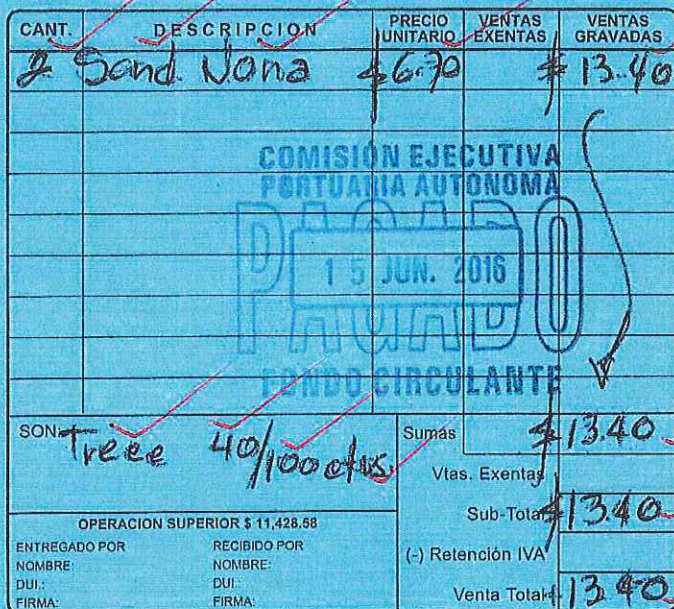 CANT. DESCRIPCION PRECIO UNITARIO VENTAS EXENTAS VENTAS GRAVADAS
2 Sand. Nona $6.70 $13.40
COMISIÓN EJECUTIVA
PORTUARIA AUTONOMA
PAGADO
15 JUN. 2016
FONDO CIRCULANTE
SON: Trece 40/100 ctvs
Sumas $13.40
Vtas. Exentas
Sub-Total $13.40
(-) Retención IVA
Venta Total $13.40
OPERACION SUPERIOR $ 11,428.58
ENTREGADO POR RECIBIDO POR
NOMBRE: NOMBRE:
DUI.: DUI.:
FIRMA: FIRMA: